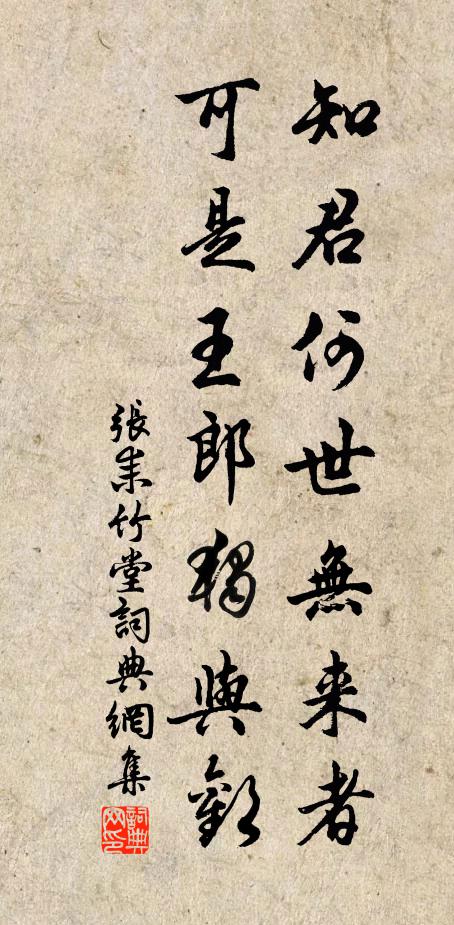 知君何世無来者
可是王郎獨與歡
張耒竹堂詞典網集
詞典網印